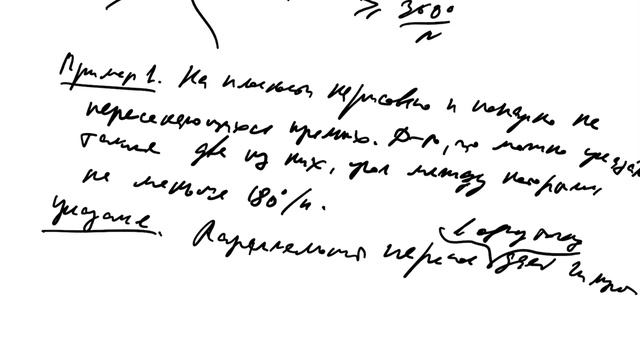 ≥ 360°/n
Пример 1. На плоскости нарисовано n попарно не
пересекающихся прямых. Д-ть, что можно указать
такие две из них, угол между которыми
не меньше 180°/n.
Указание.
в одну точку
Параллельный перенос даёт 2n